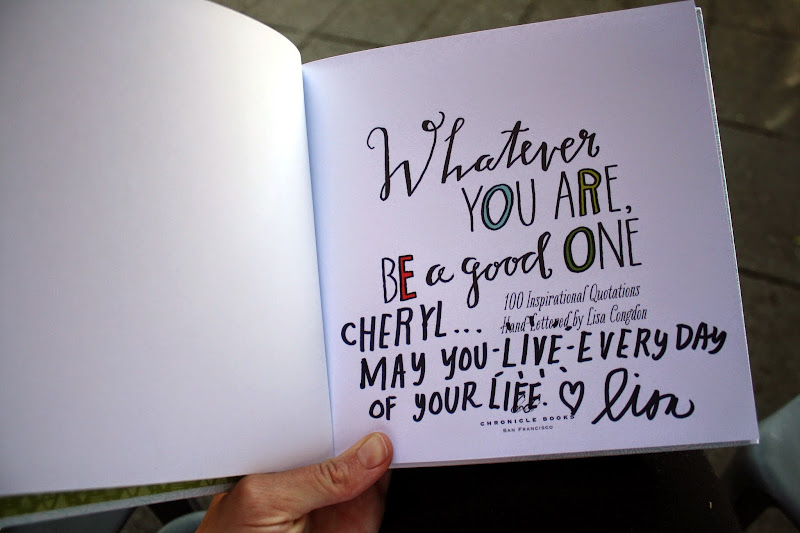 Whatever
YOU ARE,
BE a good ONE
100 Inspirational Quotations
Hand Lettered by Lisa Congdon
CHERYL...
MAY YOU-LIVE-EVERY DAY
OF YOUR LIFE. ♡ lisa
CHRONICLE BOOKS
SAN FRANCISCO